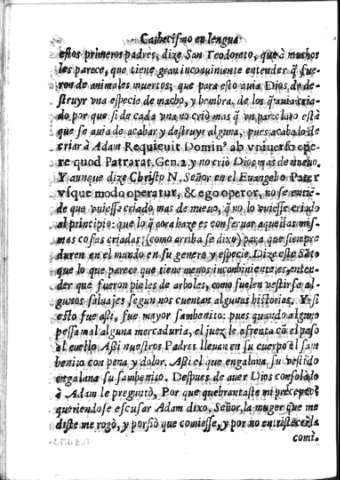 Cathecismo en lengua
estos primeros padres, dize San Teodoreto, que à muchos
les parece, que tiene gran incouiniente entender q̃ fue-
ron de animales muertos; que para esto auia Dios de de-
struyr vna especie de macho, y hembra, de los q̃ auia cria-
do por que si de cada vna no criò mas q̃ vn par claro està
que se auia de acabar y destruyr alguna, pues acabado de
criar à Adam Requieuit Domin⁹ ab vniuerso ope-
re quod Patrarat. Gen. 2. y no criò Dios mas de nueuo.
Y aunque dize Christo N, Señor en el Euangelio Pater
vsque modo operatur, & ego operor, no se entie-
de que vuiesse criado mas de nueuo, q̃ no lo vuiesse criado
al principio: que lo q̃ aora haze es conseruar aquellas mis-
mas cosas criadas (como arriba se dixo) para que siempre
duren en el mundo en su genero y especie. Dize este Săto
que lo que parece que tiene menos inconbiniente es, enten-
der que fueron pieles de arboles, como suelen vestirse al-
gunos saluajes segun nos cuentan algunas historias. Y si
esto fue assi, fue mayor sambenito: pues quando alguno
pessa mal alguna mercaduria, el juez le afrenta cõ el peso
al cuello. Assi nuestros Padres lleuan en su cuerpo el sam
benito con pena y dolor. Assi el que engalana, su vestido
engalana su sambenito. Despues de auer Dios consolado
à Adam le preguntò, Por que quebrantaste mi precepto?
queriendose escusar Adam dixo, Señor, la muger que me
diste me rogò, y porfiò que comiesse, y por no entristecerla
comi.